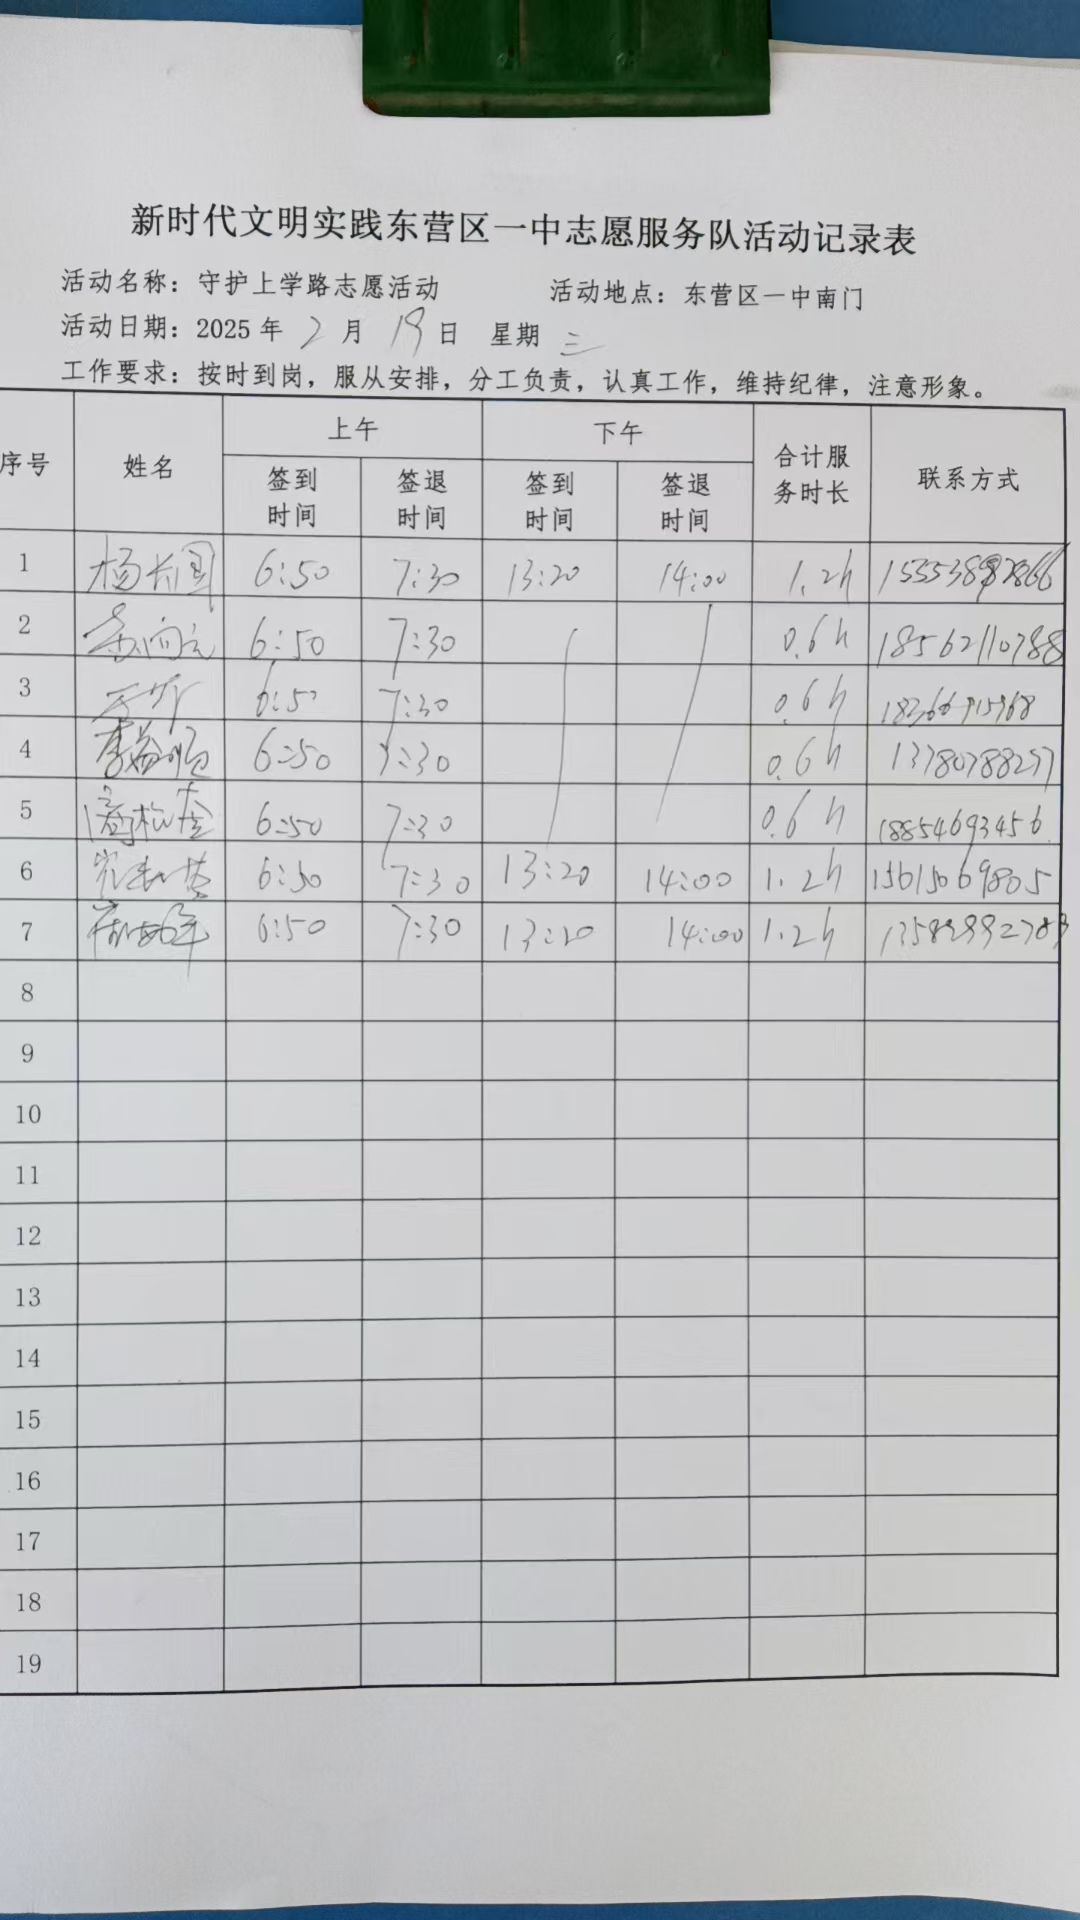 新时代文明实践东营区一中志愿服务队活动记录表
活动名称：守护上学路志愿活动 活动地点：东营区一中南门
活动日期：2025年2月19日 星期三
工作要求：按时到岗，服从安排，分工负责，认真工作，维持纪律，注意形象。
序号 姓名 上午 下午 合计服务时长 联系方式
签到时间 签退时间 签到时间 签退时间
1 杨长国 6:50 7:30 13:20 14:00 1.2h
2 6:50 7:30 0.6h 18562110788
3 6:50 7:30 0.6h
4 李益顺 6:50 7:30 0.6h 13780788297
5 6:50 7:30 0.6h 18854693456
6 6:50 7:30 13:20 14:00 1.2h 15615069805
7 6:50 7:30 13:20 14:00 1.2h
8
9
10
11
12
13
14
15
16
17
18
19